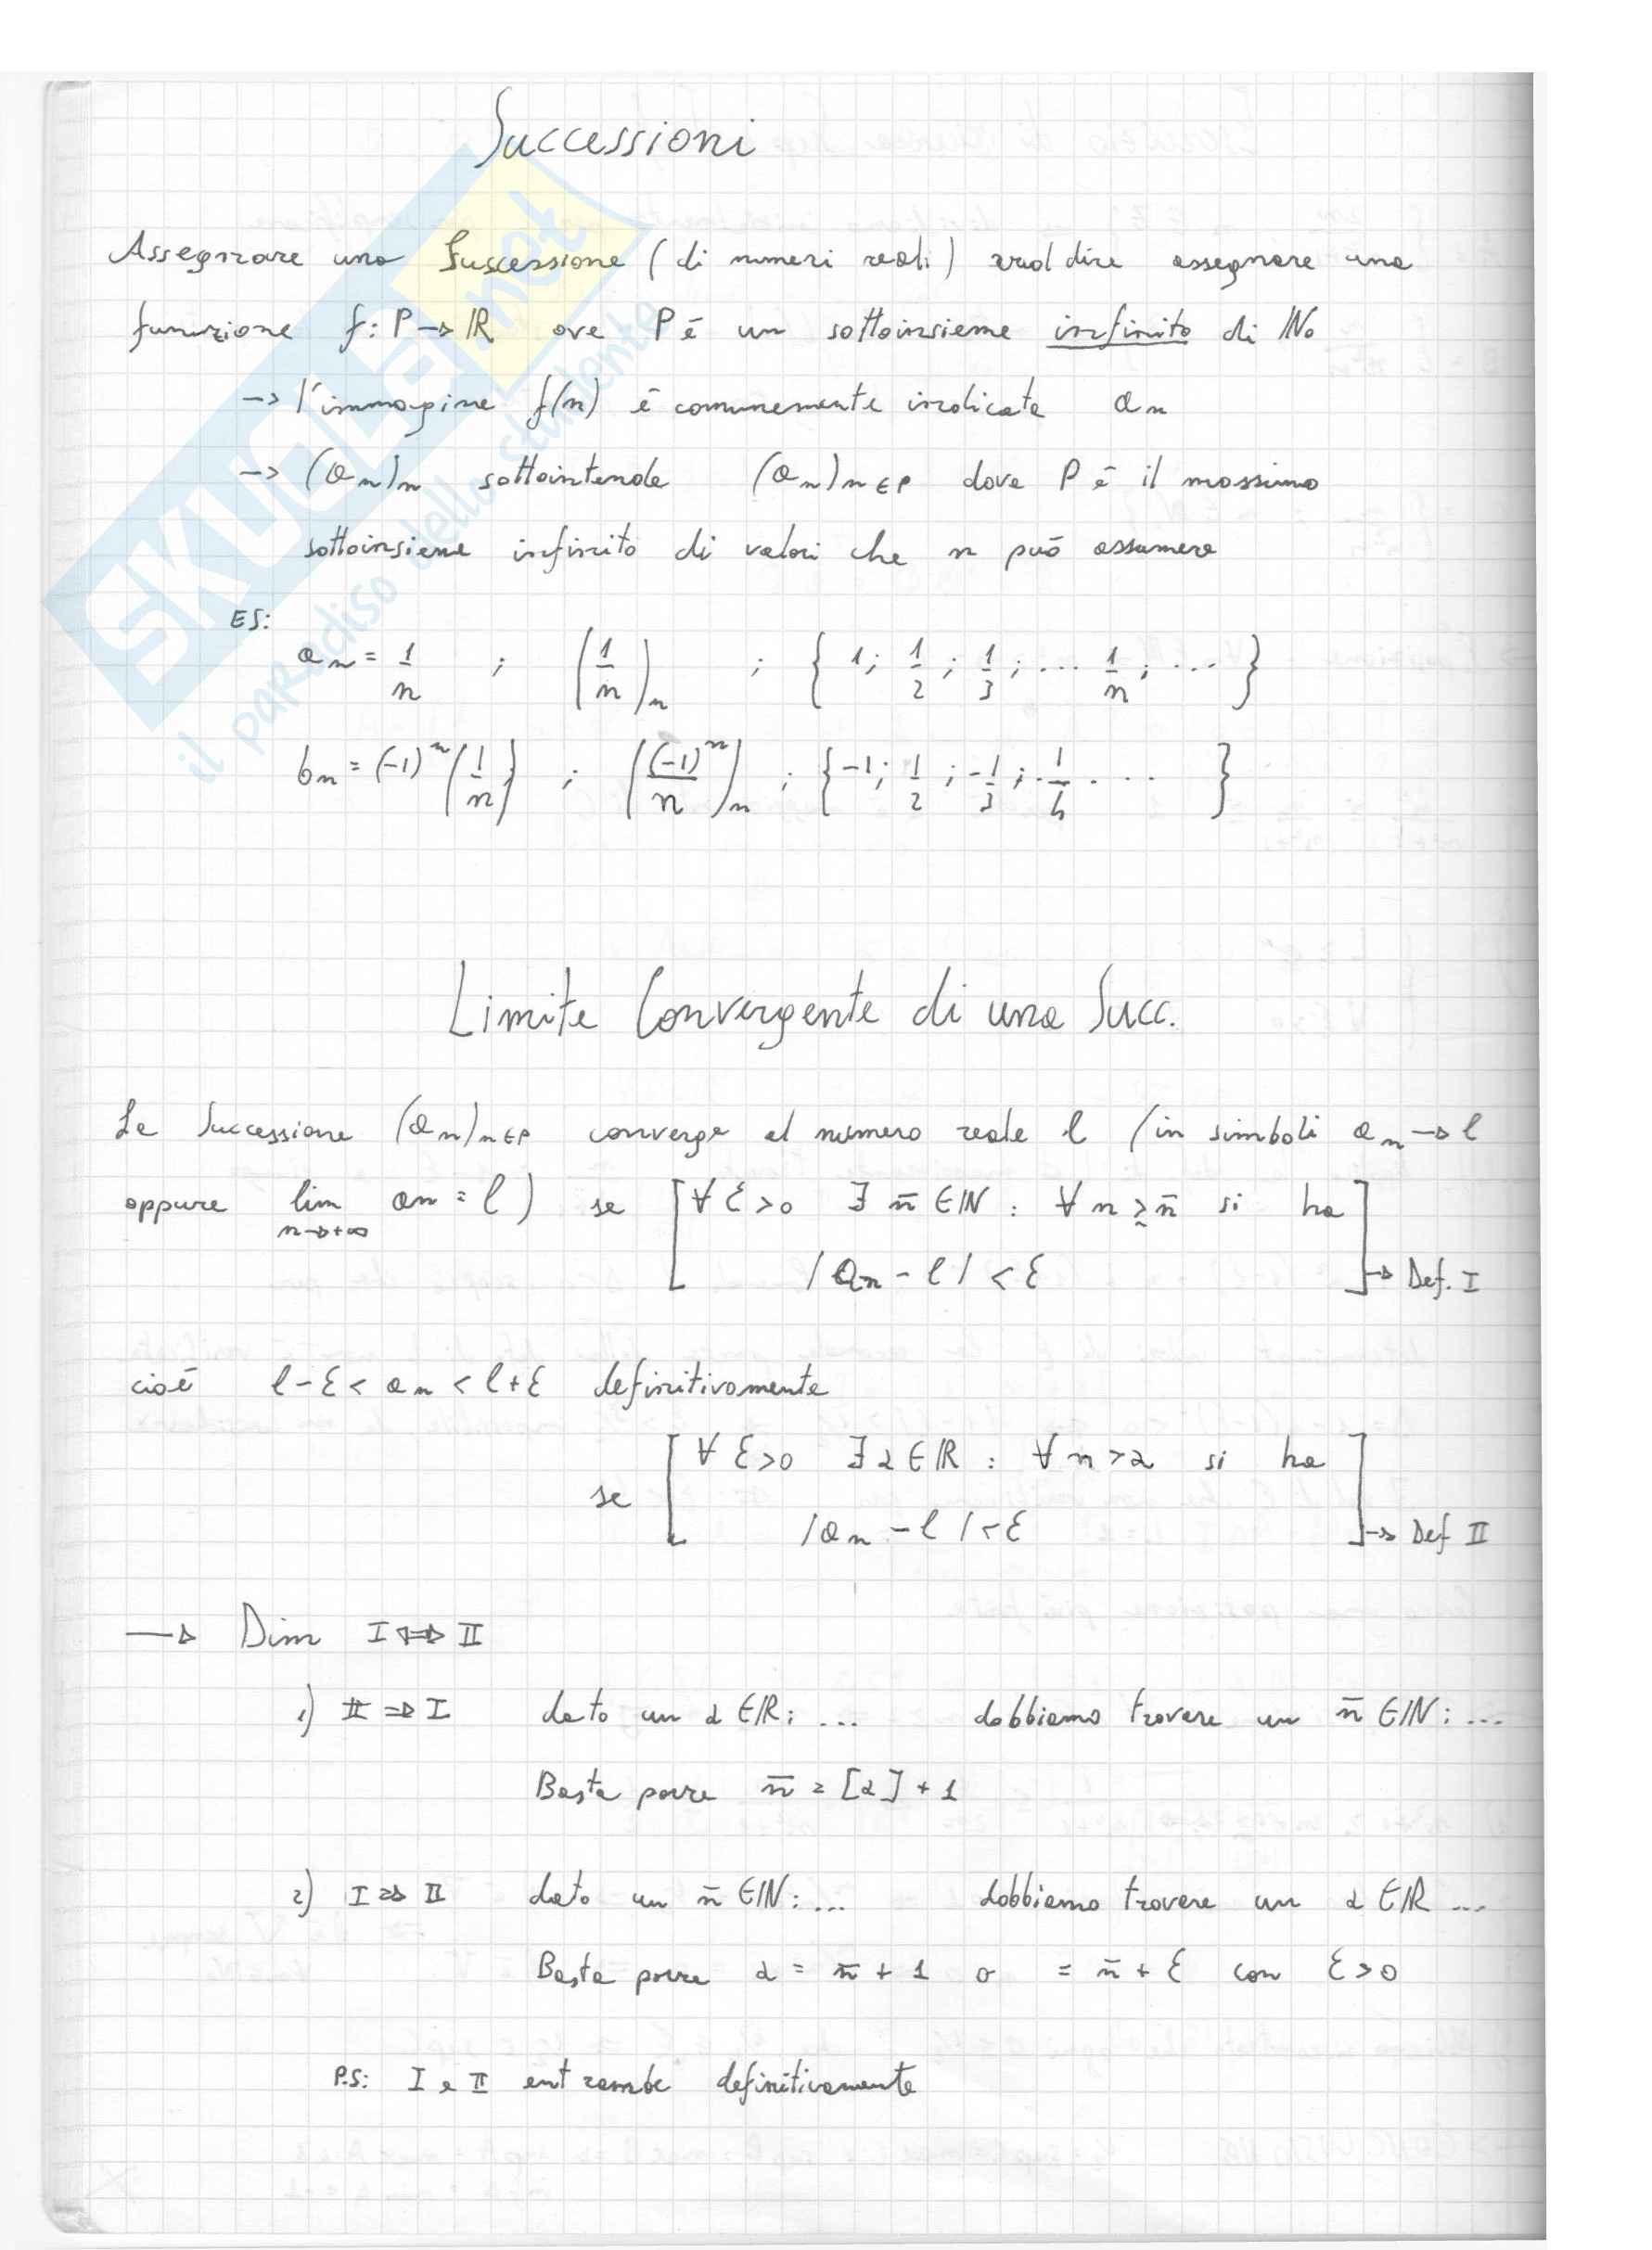 Successioni
Assegnare una Successione (di numeri reali) vuol dire assegnare una
funzione f: P → ℝ ove P é un sottoinsieme infinito di ℕ₀
→ l'immagine f(n) é comunemente indicata aₙ
→ (aₙ)ₙ sottointende (aₙ)ₙ∈P dove P é il massimo
sottoinsieme infinito di valori che n puó assumere
ES:
aₙ = 1/n ; (1/n)ₙ ; { 1; 1/2; 1/3; ... 1/n; ... }
bₙ = (-1)ⁿ (1/n) ; ((-1)ⁿ/n)ₙ ; { -1; 1/2; -1/3; 1/4 ... }
Limite Convergente di una Succ.
La Successione (aₙ)ₙ∈P converge al numero reale l (in simboli aₙ → l
oppure lim n→+∞ aₙ = l ) se [ ∀ ε>0 ∃ n̄ ∈ ℕ : ∀ n ≥ n̄ si ha
|aₙ - l| < ε ] → Def. I
cioé l-ε < aₙ < l+ε definitivamente
se [ ∀ ε>0 ∃ α ∈ ℝ : ∀ n > α si ha
|aₙ - l| < ε ] → Def II
→ Dim I ⇔ II
1) II ⇒ I dato un α ∈ ℝ: ... dobbiamo trovare un n̄ ∈ ℕ: ...
Basta porre n̄ = [α] + 1
2) I ⇒ II dato un n̄ ∈ ℕ: ... dobbiamo trovare un α ∈ ℝ ...
Basta porre α = n̄ + 1 o = n̄ + ε con ε > 0
P.S: I e II entrambe definitivamente
SKUOLA.net
il paradiso dello studente